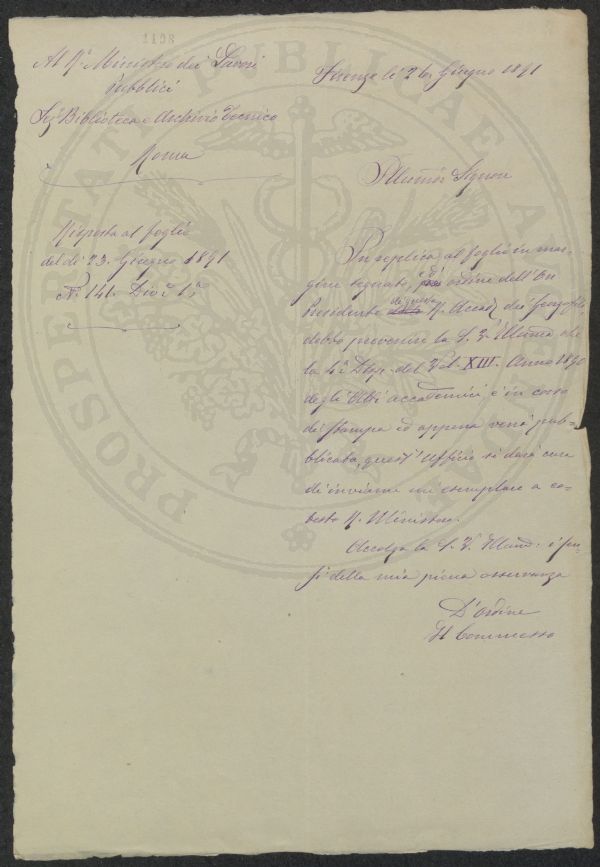 Al R.o Ministero dei Lavori
Pubblici
Biblioteca e Archivio Tecnico
Roma
Risposta al foglio
del dì 23. Giugno 1891
N.o 141. Div.e 1.a
Firenze li 26 Giugno 1891
Illumo Signore
In replica al foglio in mar-
gine segnato, ed ordine dell' On
Presidente di questa R. Accad. dei Georgofili
debbo prevenire la S. V. Illuma che
la 4.a Disp. del Vol. XIII. Anno 1890
degli Atti accademici è in corso
di stampa ed appena verrà pub-
blicata, quest' Ufficio si darà cura
di inviarne un esemplare a co-
desto R. Ministero.
Accolga la S. V. Illuma: i sen-
si della mia piena osservanza
D'Ordine
Il Commesso
PROSPERITATI PUBLICAE AUGENDAE